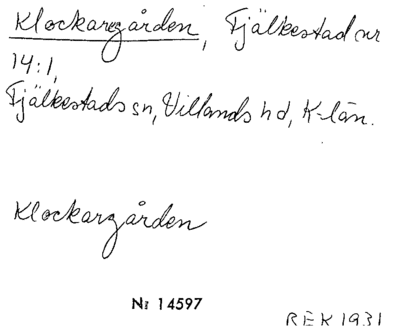 Klockargården, Fjälkestad nr
14:1,
Fjälkestads sn, Villands hd, K-län.
Klockargården
Nr 14597
REK 1931